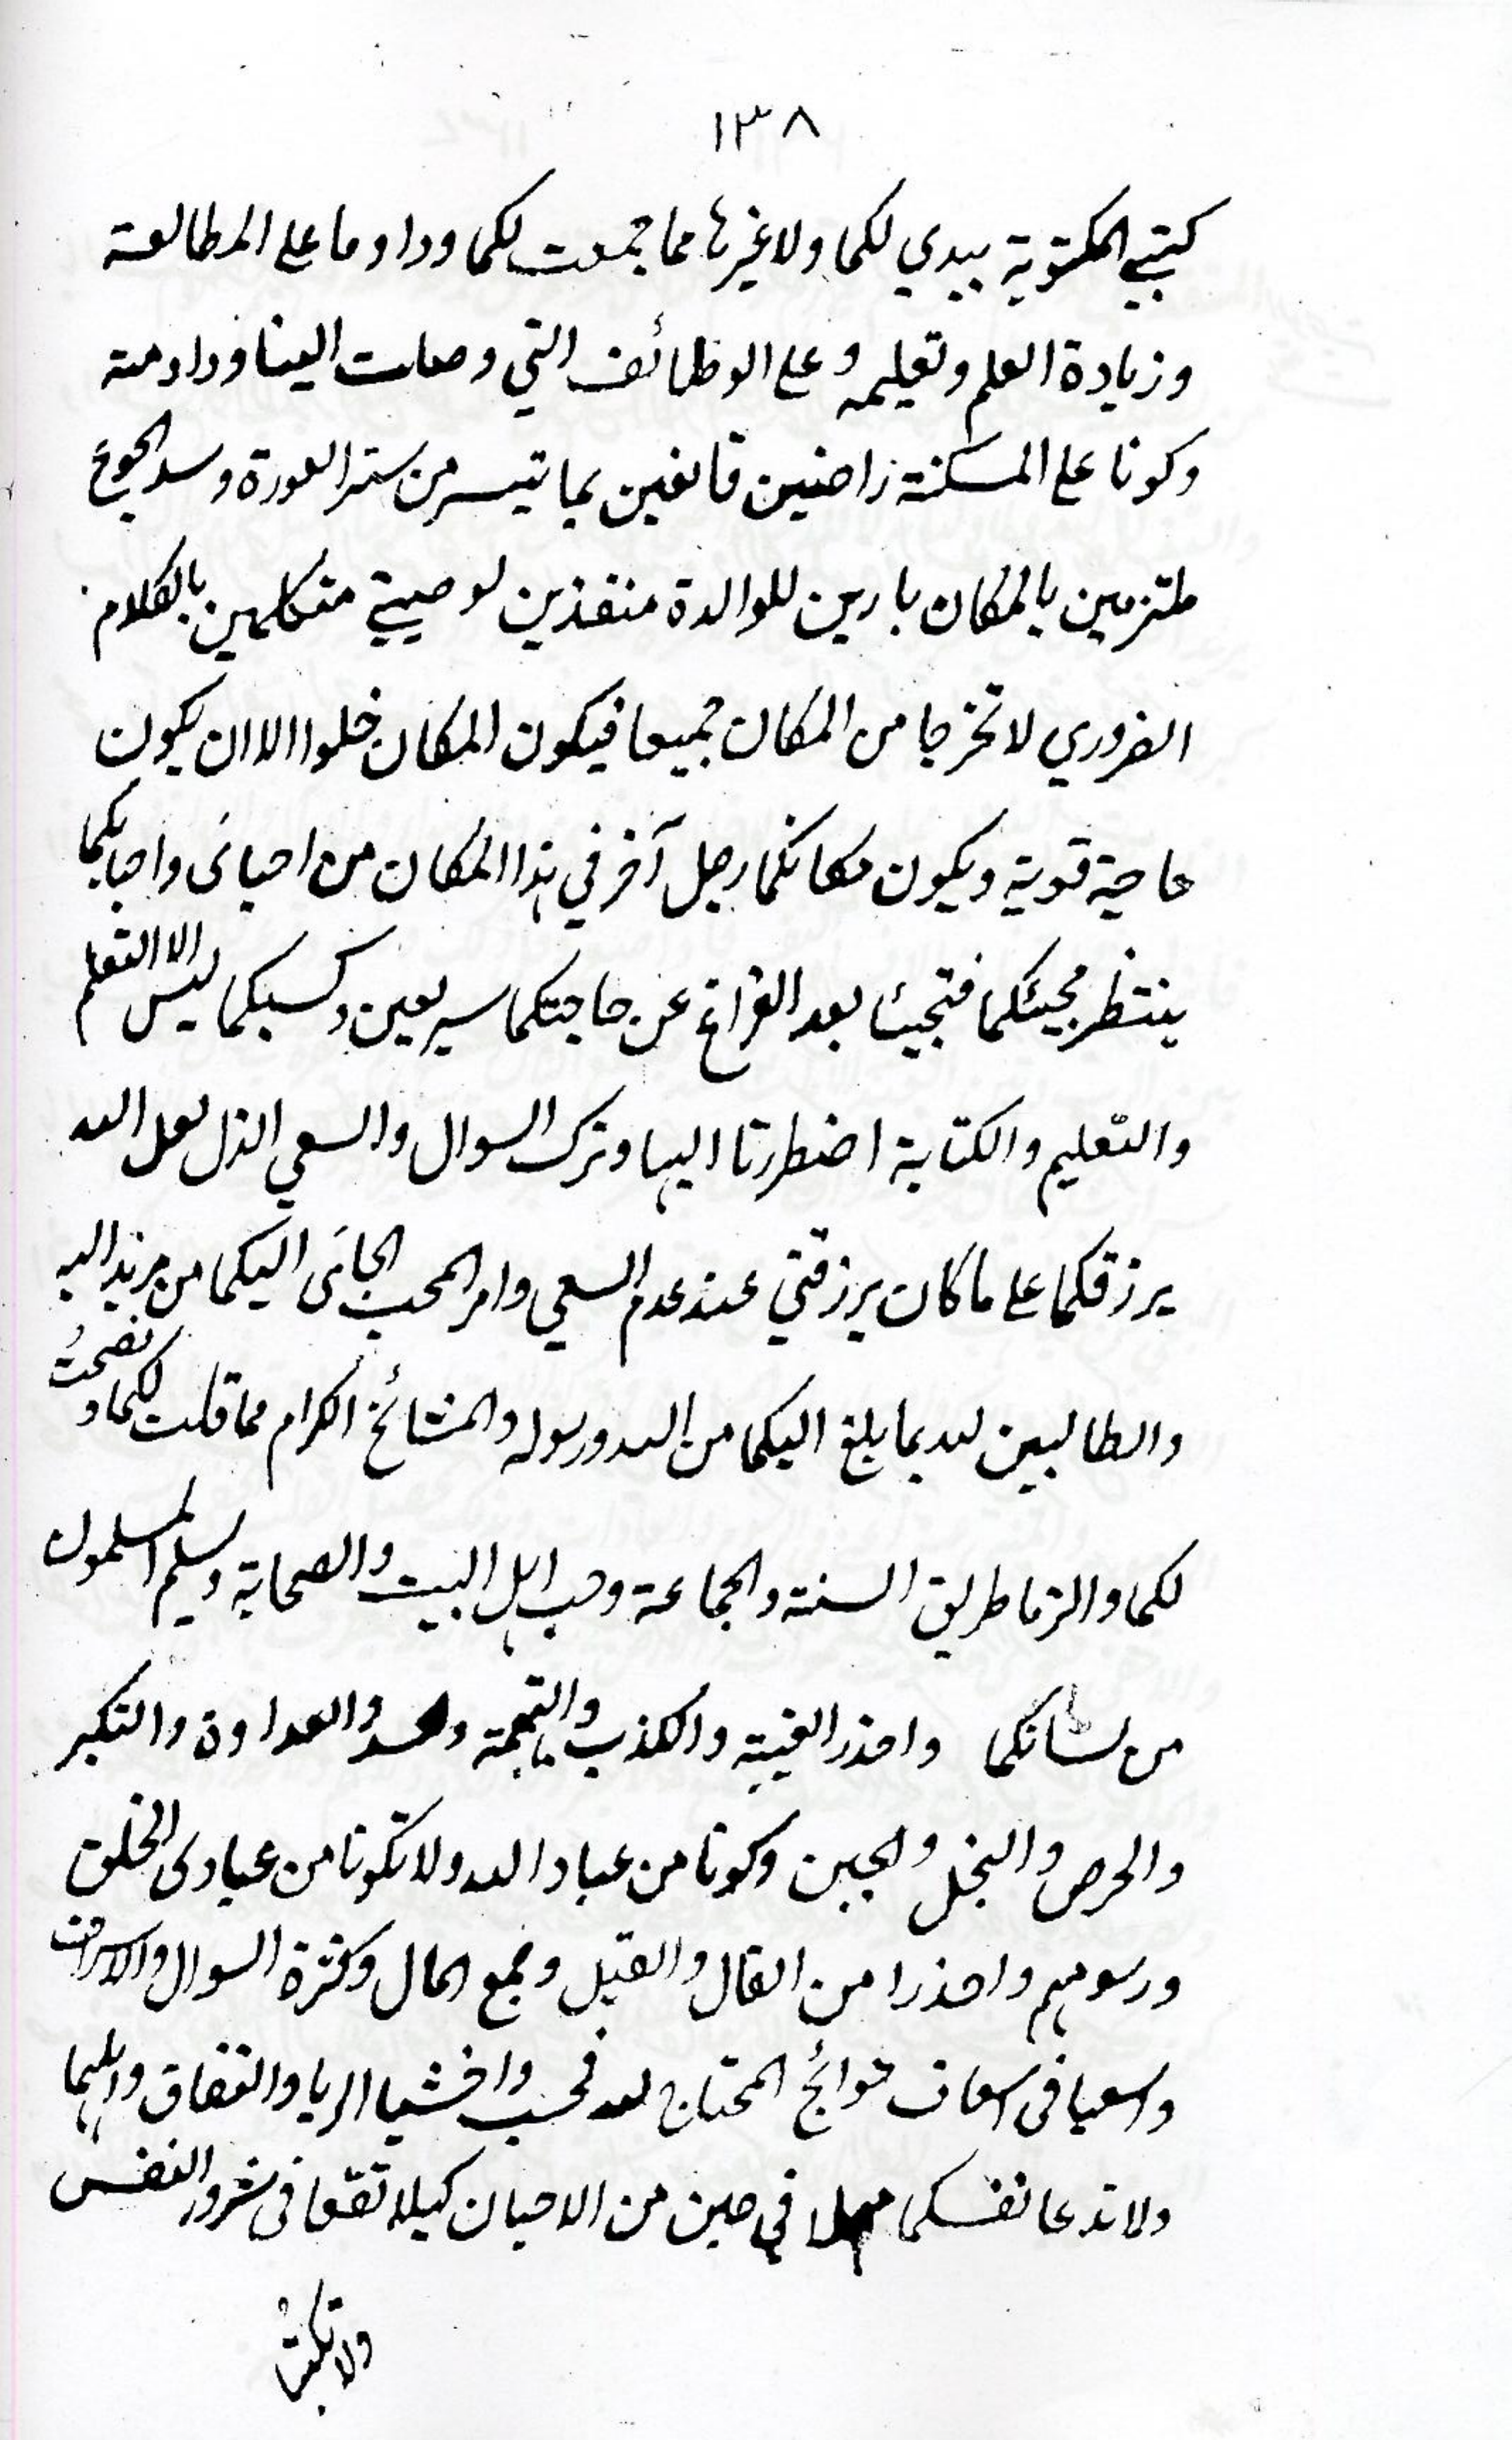 ١٣٨
كتبي المكتوبة بيدي لكما ولا غيرها مما جمعت لكما وداوما على المطالعة
وزيادة العلم وتعليمه وعلى الوظائف التي وصلت الينا ودادمته
وكونا على المسكنة راضيين قانعين بما تيسر من ستر العورة وسد الجوع
ملتزمين بالمكان بارين للوالدة منفذين لوصيتي متكلمين بالكلام
الضروري لا تخرجا من المكان جميعا فيكون المكان خلوا الا ان يكون
حاجة قوية ويكون مكانكما رجل آخر في هذا المكان من احبائى واحبائكما
ينتظر مجيئكما فتجيئا بعد الفراغ عن حاجتكما سريعين وكسبكما ليس الا التعلم
والتعليم والكتابة اضطررتا اليها وترك السوال والسعي الذل لعل الله
يرزقكما على ما كان يرزقني عند عدم السعي وامر المحب الجائى اليكما من مريد اليه
والطالبين لله بما بلغ اليكما من الله ورسوله والمشائخ الكرام مما قلت لكما ونصحت
لكما والزما طريق السنة والجماعة وحب اهل البيت والصحابة وليسلم المسلمون
من لسانكما واحذر الغيبة والكذب والتهمة والحسد والعداوة والتكبر
والحرص والبخل والجبن وكونا من عباد الله ولا تكونا من عبادى الخلق
ورسومهم واحذرا من القال والقيل وجمع المال وكثرة السوال والاسراف
واسعيا فى اسعاف حوائج المحتاج لله فحسب واخشيا الريا والنفاق واهلهما
ولا تدعا نفسكما مهملا في حين من الاحيان كيلا تقعا فى شرور النفس
ولا تلبثا